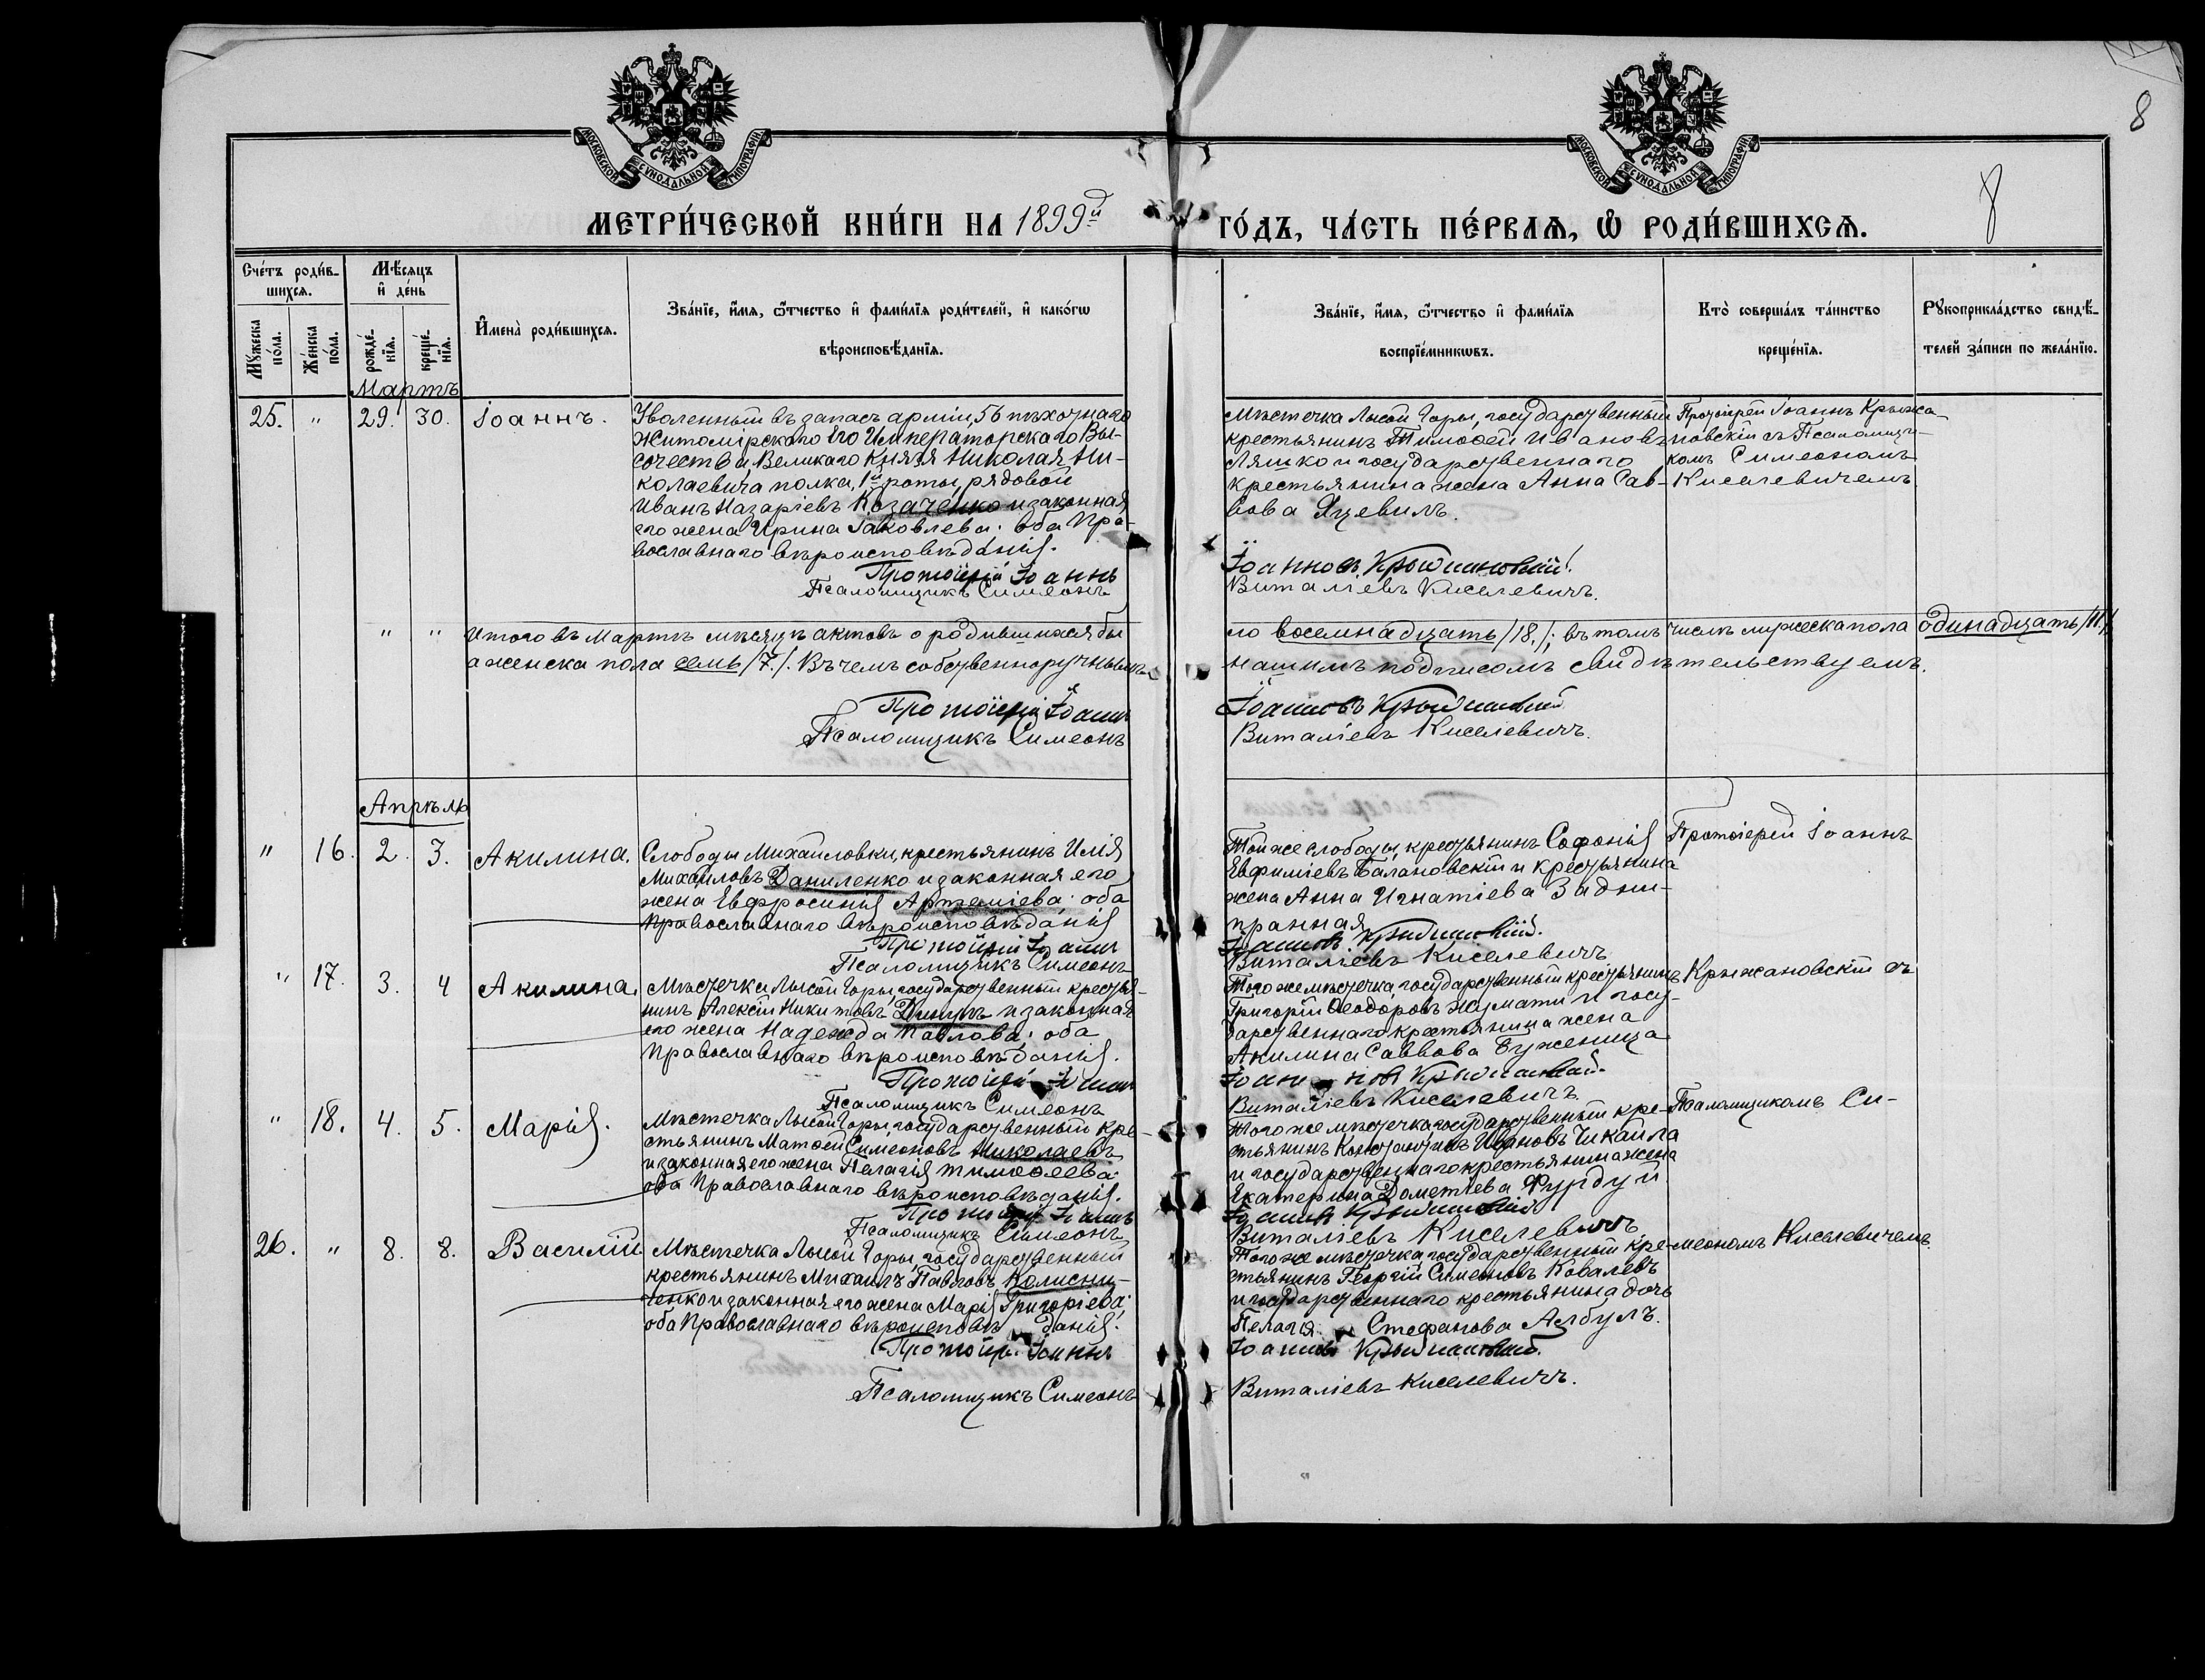 8
МОСКОВСКОЙ СѴНОДАЛЬНОЙ ТИПОГРАФІИ
МОСКОВСКОЙ СѴНОДАЛЬНОЙ ТИПОГРАФІИ
8
МЕТРИ́ЧЕСКОЙ КНИ́ГИ НА 1899й ГО́ДЪ, ЧА́СТЬ ПЕ́РВАѦ, Ѡ҆ РОДИ́ВШИХСѦ.
Сче́тъ роди́в-
шихсѧ.
Мѣ́сѧцъ
и҆ де́нь
Мꙋ́жеска по́ла.
Же́нска по́ла.
рожде́-нїѧ.
креще́-нїѧ.
И҆мена̀ роди́вшихсѧ.
Зва́нїе, и҆́мѧ, ѻ҆́тчество и҆ фами́лїѧ роди́телей, и҆ како́гѡ
вѣроисповѣ́данїѧ.
Зва́нїе, и҆́мѧ, ѻ҆́тчество и҆ фами́лїѧ
воспрїе́мникѡвъ.
Кто̀ соверша́лъ та́инство
креще́нїѧ.
Рꙋкоприкла́дство свидѣ́-
телей за́писи по жела́нїю.
Мартъ
25. " 29. 30. Іоаннъ.
Уволенный въ запасъ арміи, 56 пѣхотнаго
Житомірскаго Его Императорскаго Вы-
сочества, Великаго Князя Николая Ни-
колаевича полка, 1й роты, рядовой
Иванъ Назаріевъ Козаченко и законная
его жена Ирина Іаковлева: оба Пра-
вославнаго вѣроисповѣданія.
Протоіерей Іоаннъ
Псаломщикъ Симеонъ
Мѣстечка Лысой Горы, государственный
крестьянинъ Тимоѳей Ивановъ
Ляшко и государственнаго
крестьянина жена Анна Сав-
вова Яцевилъ.
Іоанновъ Крыжановскій.
Виталіевъ Киселевичъ.
Протоіерей Іоаннъ Крыжа-
новскій съ Псаломщи-
комъ Симеономъ
Киселевичемъ
" " Итого въ Мартѣ мѣсяцѣ актовъ о родившихся бы
ло восемнадцать /18./; въ томъ числѣ мужеска пола одинадцать /11/,
а женска пола семь /7./. Въ чемъ собственноручнымъ
нашимъ подписомъ свидѣтельствуемъ.
Протоіерей Іоаннъ
Псаломщикъ Симеонъ
Іоанновъ Крыжановскій
Виталіевъ Киселевичъ.
Апрѣль
" 16. 2. 3. Акилина.
Слободы Михайловки, крестьянинъ Илія
Михайловъ Даниленко и законная его
жена Евфросинія Артеміева: оба
Православнаго вѣроисповѣданія
Протоіерей Іоаннъ
Псаломщикъ Симеонъ
Той же слободы, крестьянинъ Софоній
Евфиміевъ Балановскій и крестьянина
жена Анна Игнатіева Задни-
пранная
Іоанновъ Крыжановскій.
Виталіевъ Киселевичъ
Протоіерей Іоаннъ
" 17. 3. 4 Акилина.
Мѣстечка Лысой Горы, государственный крестья-
нинъ Алексій Никитовъ и законная
его жена Надежда Павлова; оба
Православнаго вѣроисповѣданія.
Протоіерей Іоаннъ
Псаломщикъ Симеонъ
Того же мѣстечка, государственный крестьянинъ
Григорій Ѳеодоровъ и госу-
дарственнаго крестьянина жена
Акилина Саввова Буженица
Іоанновъ Крыжановскій.
Виталіевъ Киселевичъ.
Крыжановскій съ
" 18. 4. 5. Марія.
Мѣстечка Лысой Горы, государственный кре-
стьянинъ Матѳей Симеоновъ Николаевъ
и законная его жена Пелагія Тимоѳеева:
оба Православнаго вѣроисповѣданія.
Протоіерей Іоаннъ
Псаломщикъ Симеонъ
Того же мѣстечка государственный кре-
стьянинъ Константинъ Ивановъ Чикайла
и государственнаго крестьянина жена
Екатерина Дометіева Фурдуй
Іоанновъ Крыжановскій
Виталіевъ Киселевичъ
Псаломщикомъ Си-
26. " 8. 8. Василій
Мѣстечка Лысой Горы, государственный
крестьянинъ Михаилъ Павловъ Колисни-
ченко и законная его жена Марія Григоріева;
оба Православнаго вѣроисповѣданія.
Протоіер. Іоаннъ
Псаломщикъ Симеонъ
Того же мѣстечка государственный кре-
стьянинъ Георгій Симеоновъ Ковалевъ
и государственнаго крестьянина дочь
Пелагія Стефанова Албулъ.
Іоанновъ Крыжановскій.
Виталіевъ Киселевичъ.
меономъ Киселевичемъ.